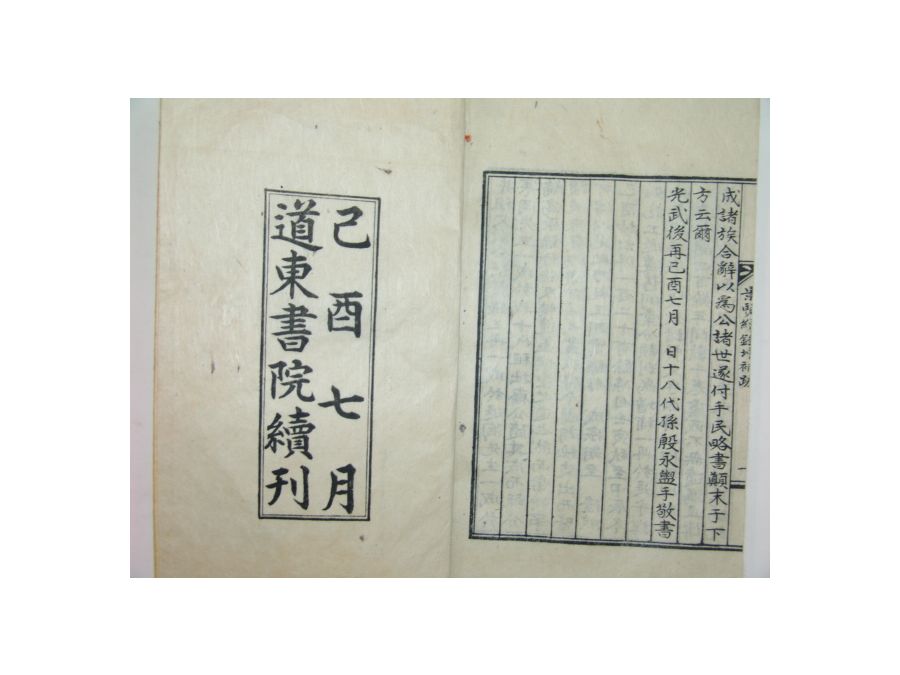 景賢續錄增補跋 一
成諸族合辭以爲公諸世遂付手民略書顚末于下
方云爾
光武後再己酉七月 日十八代孫殷永盥手敬書
己酉七月
道東書院續刊